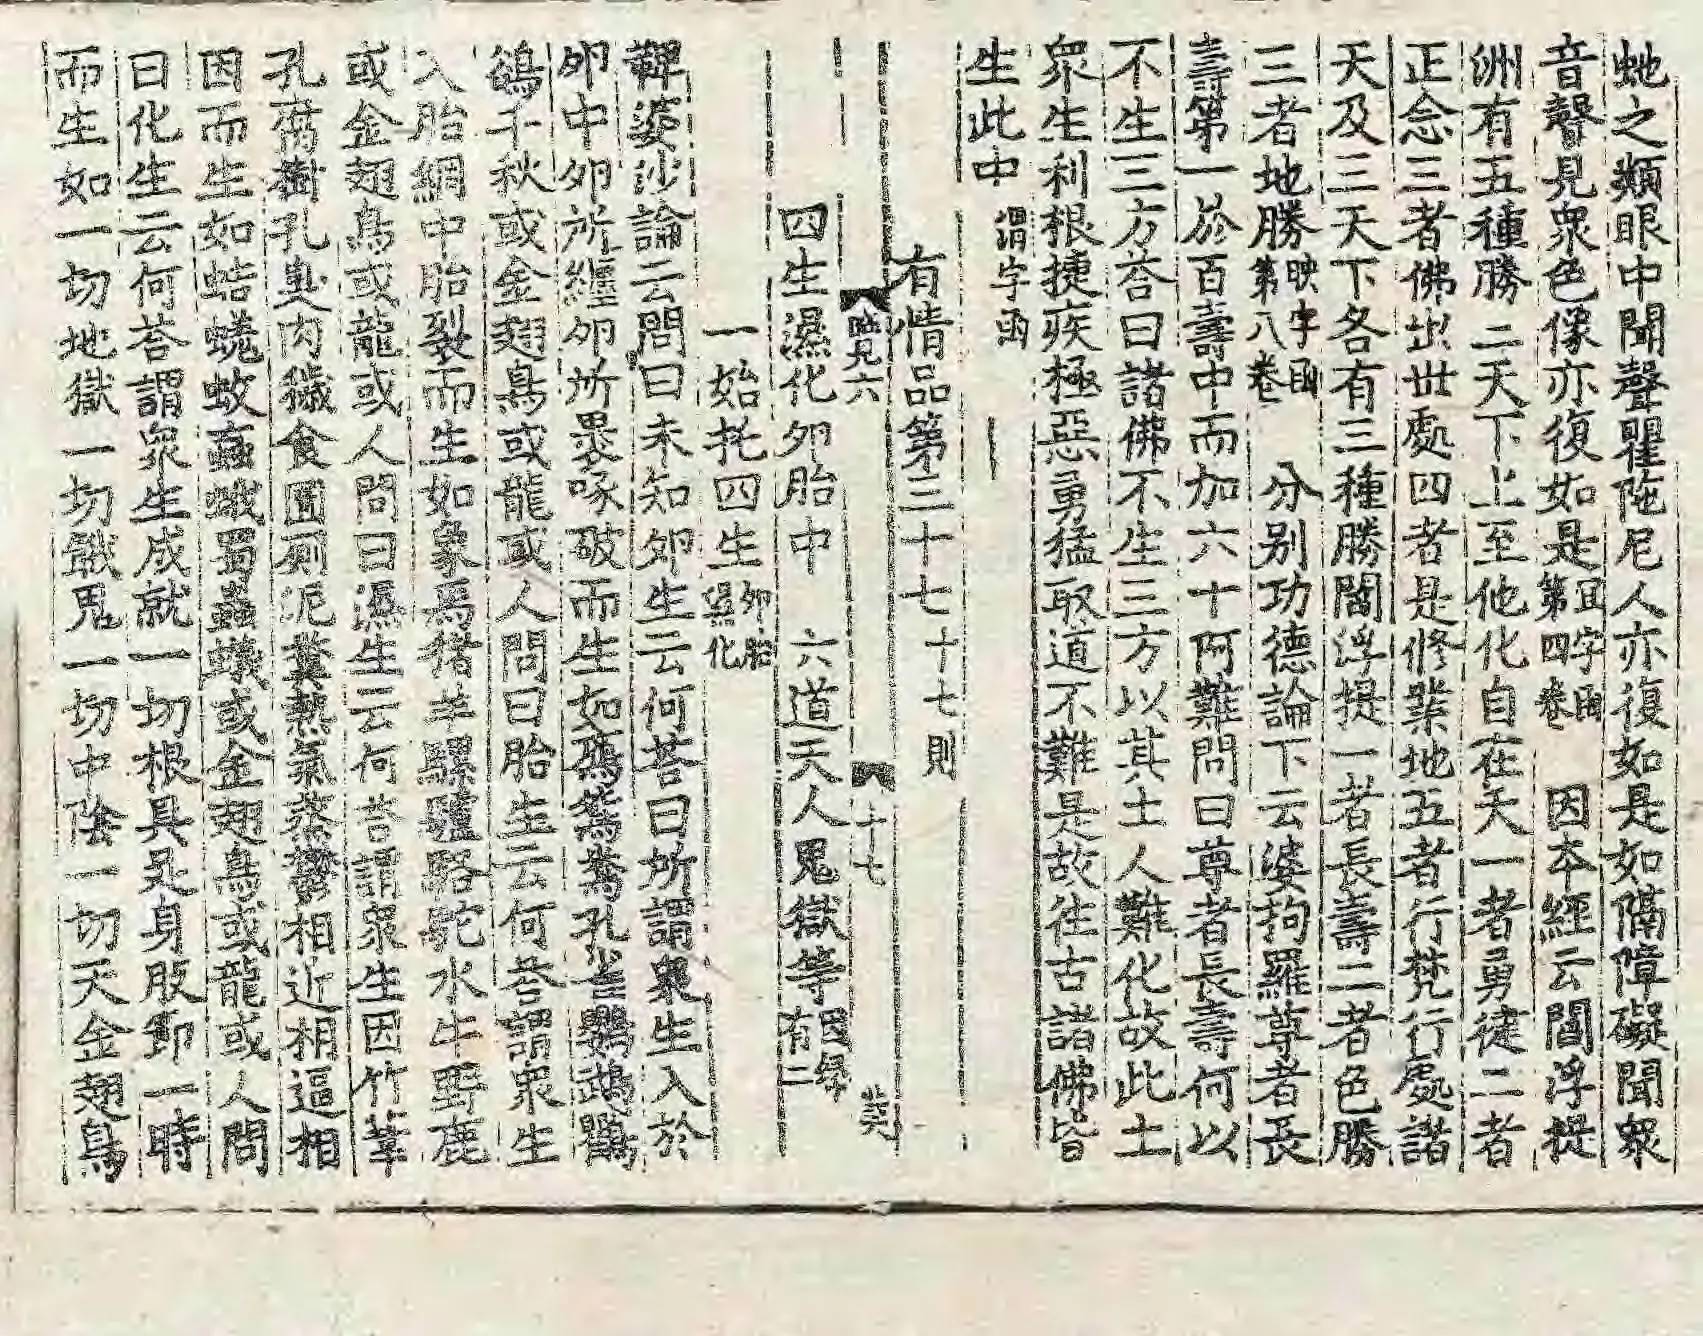 虵之類眼中聞聲瞿陁尼人亦復如是如隔障礙聞衆
音聲見衆色像亦復如是第四卷宜字函 因本經云閻浮提
洲有五種勝二天下上至他化自在天一者勇健二者
正念三者佛出世處四者是修業地五者行梵行處諸
天及三天下各有三種勝閻浮提一者長壽二者色勝
三者地勝映字函第八卷 分別功德論下云婆拘羅尊者長
壽第一於百壽中而加六十阿難問曰尊者長壽何以
不生三方荅曰諸佛不生三方以其土人難化故此土
衆生利根捷疾極惡勇猛取道不難是故往古諸佛皆
生此中謂字函
有情品第三十七 十七則
陸見六 十七
四生濕化夘胎中 六道天人鬼獄等因緣有二
一始托四生夘胎濕化
鞞婆沙論云問曰未知夘生云何荅曰所謂衆生入於
夘中夘所纏夘所褁啄破而生如鴈鴛鴦孔雀鸚鵡鸜
鵒千秋或金翅鳥或龍或人問曰胎生云何荅謂衆生
入胎網中胎裂而生如象馬猪羊騾驢駱駝水牛野鹿
或金翅鳥或龍或人問曰濕生云何荅謂衆生因竹葦
孔腐樹孔臭肉穢食圊厠泥糞熱氣蒸鬱相近相逼相
因而生如蛣蜣蚊䖟蛾蜀蟲蟻或金翅鳥或龍或人問
曰化生云何荅謂衆生成就一切根具足身股節一時
而生如一切地獄一切餓鬼一切中陰一切天金翅鳥